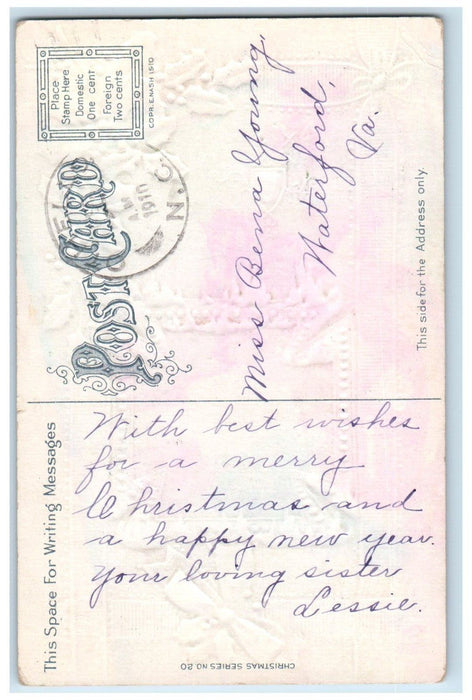 Place
Stamp Here
Domestic
One cent
Foreign
Two cents
COPR. E. NASH 1910
POST CARD
AM
1910
N.C.
Miss Bena Young,
Waterford,
Va.
This side for the Address only.
This Space For Writing Messages
With best wishes
for a merry
Christmas and
a happy new year.
Your loving sister
Lessie.
CHRISTMAS SERIES NO. 20